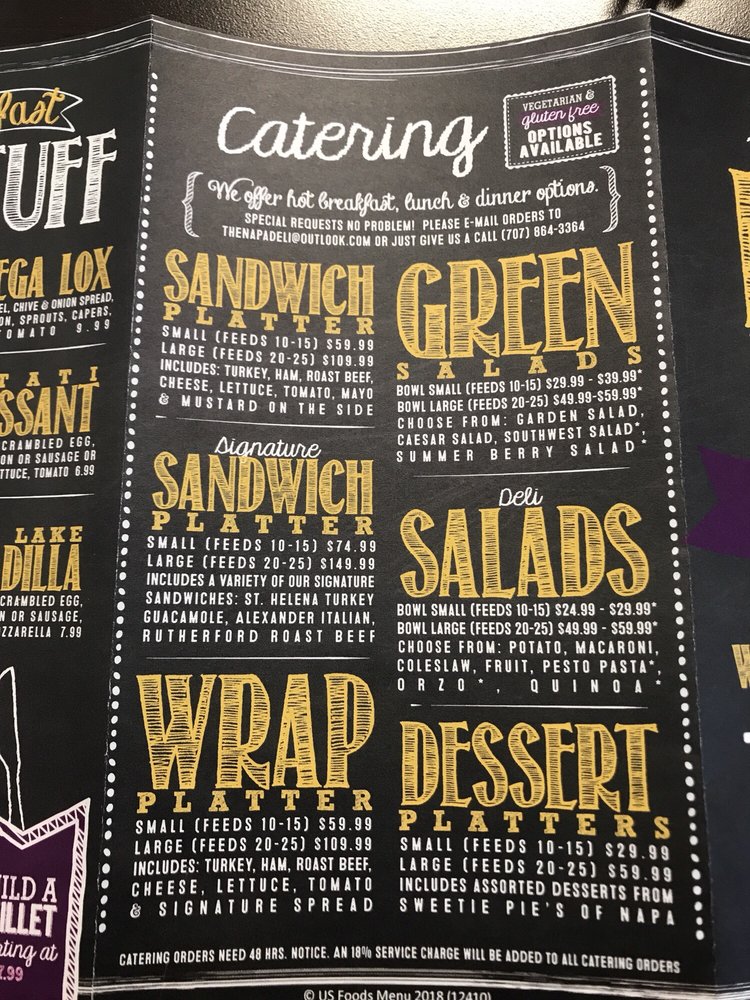 fast
TUFF
EGA LOX
EL, CHIVE & ONION SPREAD,
ON, SPROUTS, CAPERS,
TOMATO 9.99
TATI
SSANT
CRAMBLED EGG,
ON OR SAUSAGE OR
TTUCE, TOMATO 6.99
LAKE
DILLA
CRAMBLED EGG,
N OR SAUSAGE,
ZZARELLA 7.99
ILD A
ILLET
ting at
7.99
Catering
VEGETARIAN &
gluten free
OPTIONS
AVAILABLE
We offer hot breakfast, lunch & dinner options.
SPECIAL REQUESTS NO PROBLEM! PLEASE E-MAIL ORDERS TO
THENAPADELI@OUTLOOK.COM OR JUST GIVE US A CALL (707) 864-3364
SANDWICH
PLATTER
SMALL (FEEDS 10-15) $59.99
LARGE (FEEDS 20-25) $109.99
INCLUDES: TURKEY, HAM, ROAST BEEF,
CHEESE, LETTUCE, TOMATO, MAYO
& MUSTARD ON THE SIDE
Signature
SANDWICH
PLATTER
SMALL (FEEDS 10-15) $74.99
LARGE (FEEDS 20-25) $149.99
INCLUDES A VARIETY OF OUR SIGNATURE
SANDWICHES: ST. HELENA TURKEY
GUACAMOLE, ALEXANDER ITALIAN,
RUTHERFORD ROAST BEEF
WRAP
PLATTER
SMALL (FEEDS 10-15) $59.99
LARGE (FEEDS 20-25) $109.99
INCLUDES: TURKEY, HAM, ROAST BEEF,
CHEESE, LETTUCE, TOMATO
& SIGNATURE SPREAD
GREEN
SALADS
BOWL SMALL (FEEDS 10-15) $29.99 - $39.99*
BOWL LARGE (FEEDS 20-25) $49.99-$59.99*
CHOOSE FROM: GARDEN SALAD,
CAESAR SALAD, SOUTHWEST SALAD*,
SUMMER BERRY SALAD*
Deli
SALADS
BOWL SMALL (FEEDS 10-15) $24.99 - $29.99*
BOWL LARGE (FEEDS 20-25) $49.99 - $59.99*
CHOOSE FROM: POTATO, MACARONI,
COLESLAW, FRUIT, PESTO PASTA*,
ORZO*, QUINOA*
DESSERT
PLATTERS
SMALL (FEEDS 10-15) $29.99
LARGE (FEEDS 20-25) $59.99
INCLUDES ASSORTED DESSERTS FROM
SWEETIE PIE'S OF NAPA
CATERING ORDERS NEED 48 HRS. NOTICE. AN 18% SERVICE CHARGE WILL BE ADDED TO ALL CATERING ORDERS
© US Foods Menu 2018 (12410)